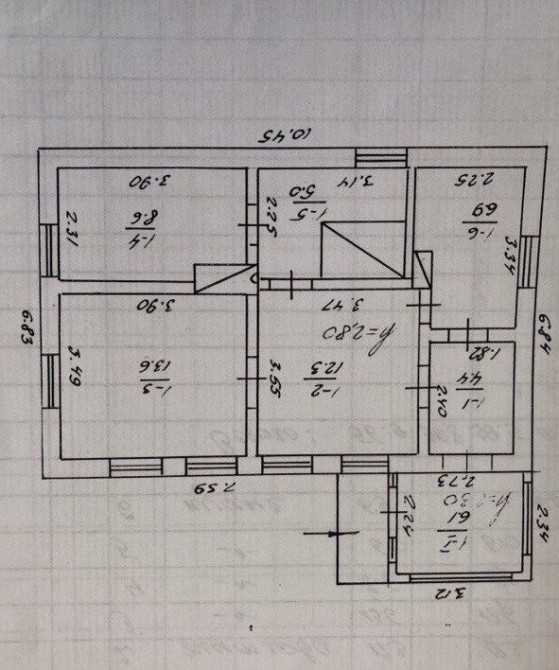 3.12
1-I
6.1
h=2.30
2.34
2.24
2.73
7.59
1-1
4.4
2.40
1.82
1-2
12.3
3.55
h=2,80
3.47
1-3
13.6
3.49
3.90
6.84
6.83
1-6
6.9
3.34
2.25
1-5
5.0
2.25
3.14
1-4
8.6
2.31
3.90
10.45